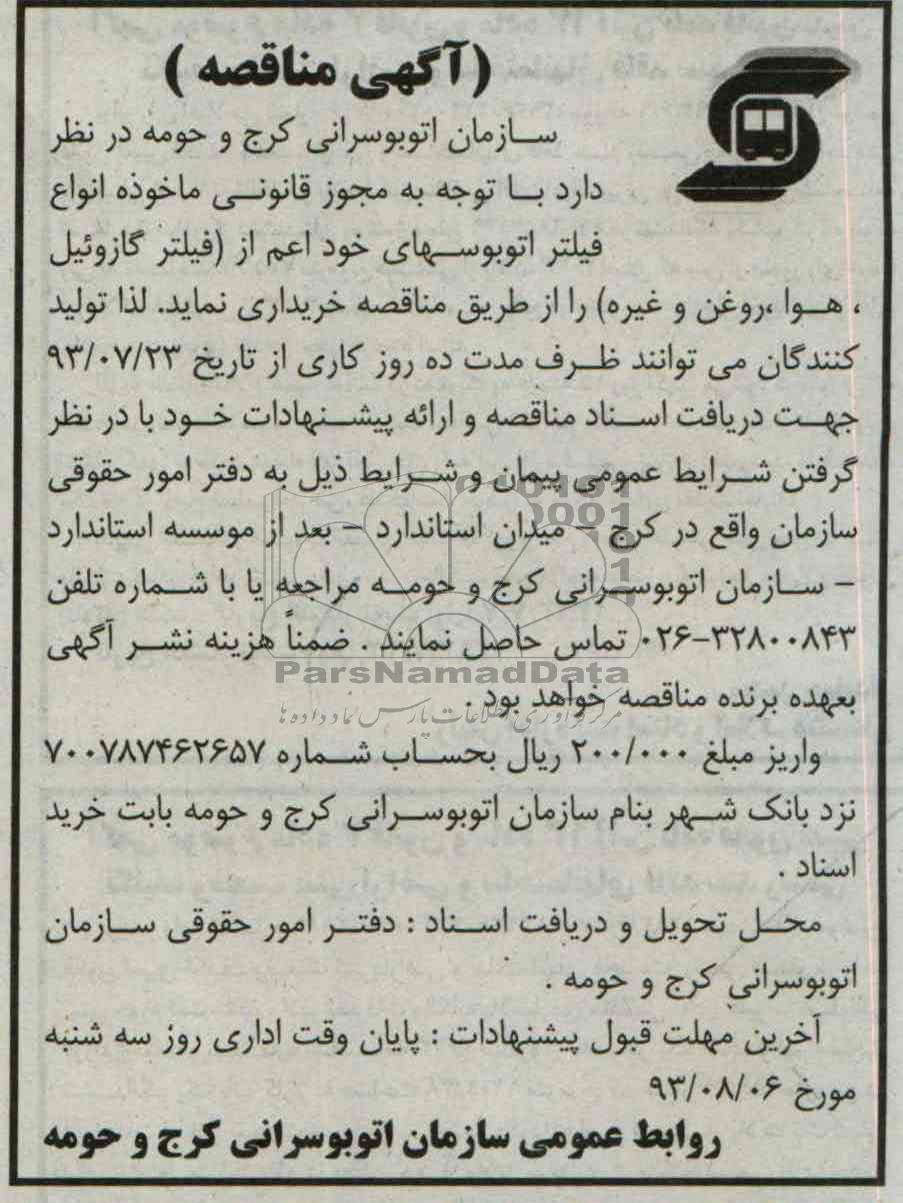 (آگهی مناقصه)
سازمان اتوبوسرانی کرج و حومه در نظر
دارد با توجه به مجوز قانونی ماخوذه انواع
فیلتر اتوبوسهای خود اعم از (فیلتر گازوئیل
، هوا ،روغن و غیره) را از طریق مناقصه خریداری نماید. لذا تولید
کنندگان می توانند ظرف مدت ده روز کاری از تاریخ ۹۳/۰۷/۲۳
جهت دریافت اسناد مناقصه و ارائه پیشنهادات خود با در نظر
گرفتن شرایط عمومی پیمان و شرایط ذیل به دفتر امور حقوقی
سازمان واقع در کرج – میدان استاندارد – بعد از موسسه استاندارد
– سازمان اتوبوسرانی کرج و حومه مراجعه یا با شماره تلفن
۰۲۶-۳۲۸۰۰۸۴۳ تماس حاصل نمایند . ضمناً هزینه نشر آگهی
ParsNamadData
بعهده برنده مناقصه خواهد بود .
مرکز فرآوری اطلاعات پارس نماد داده ها
واریز مبلغ ۲۰۰/۰۰۰ ریال بحساب شماره ۷۰۰۷۸۷۴۶۲۶۵۷
نزد بانک شهر بنام سازمان اتوبوسرانی کرج و حومه بابت خرید
اسناد .
محل تحویل و دریافت اسناد : دفتر امور حقوقی سازمان
اتوبوسرانی کرج و حومه .
آخرین مهلت قبول پیشنهادات : پایان وقت اداری روز سه شنبه
مورخ ۹۳/۰۸/۰۶
روابط عمومی سازمان اتوبوسرانی کرج و حومه